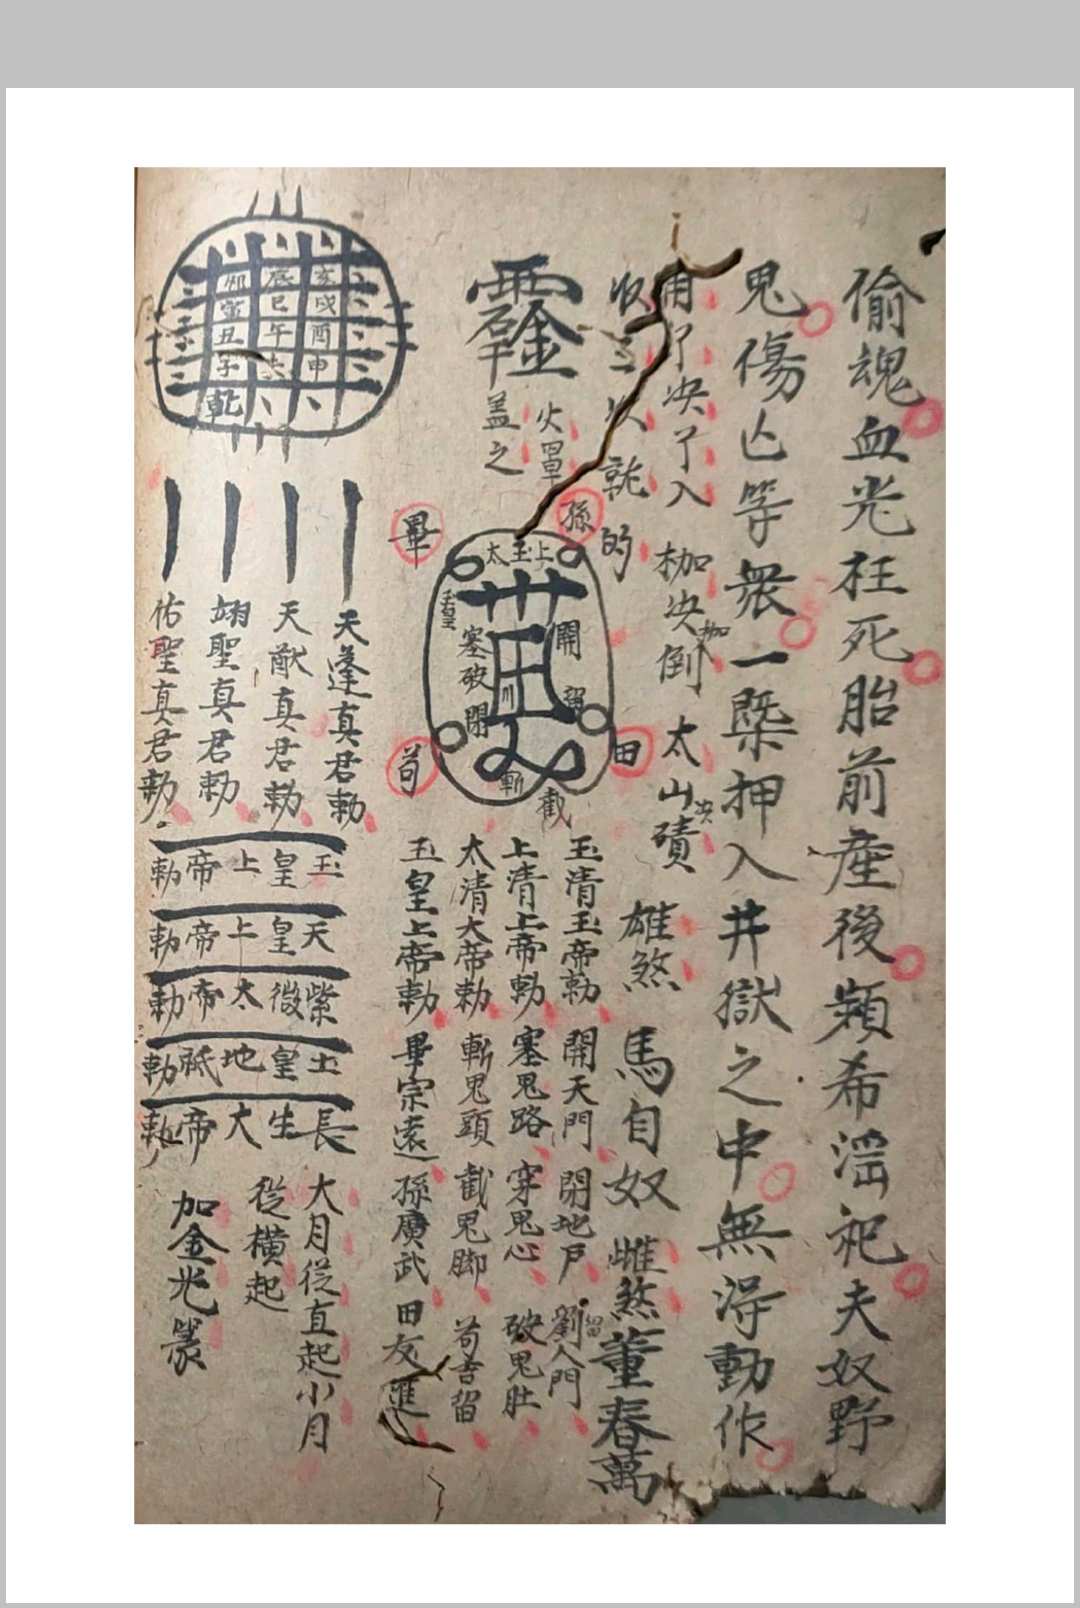 偷魂血光枉死胎前產後類希滛祀夫奴野
鬼傷亡等衆一槩押入井獄之中無淂動作
用了决了入 枷决倒 太山磧 雄煞 馬自奴 雌煞董春萬
枷
决
收 就的
火罩
蓋之
孫
畢
田
苟
太玉上
玉皇
開
塞破閉
留
斬
截
玉清玉帝勅 開天門 閉地戶 劉人門
留
上清上帝勅 塞鬼路 穿鬼心 破鬼肚
太清大帝勅 斬鬼頭 截鬼脚 苟吉留
玉皇上帝勅 畢宗遠 孫廣武 田友進
亥戌酉申
辰巳午未
卯寅丑子
乾
天蓬真君勅
天猷真君勅
翊聖真君勅
佑聖真君勅
玉皇上帝勅
天皇上帝勅
紫微大帝勅
土皇地祇勅
長生大帝勅
大月從直起小月
從横起
加金光篆